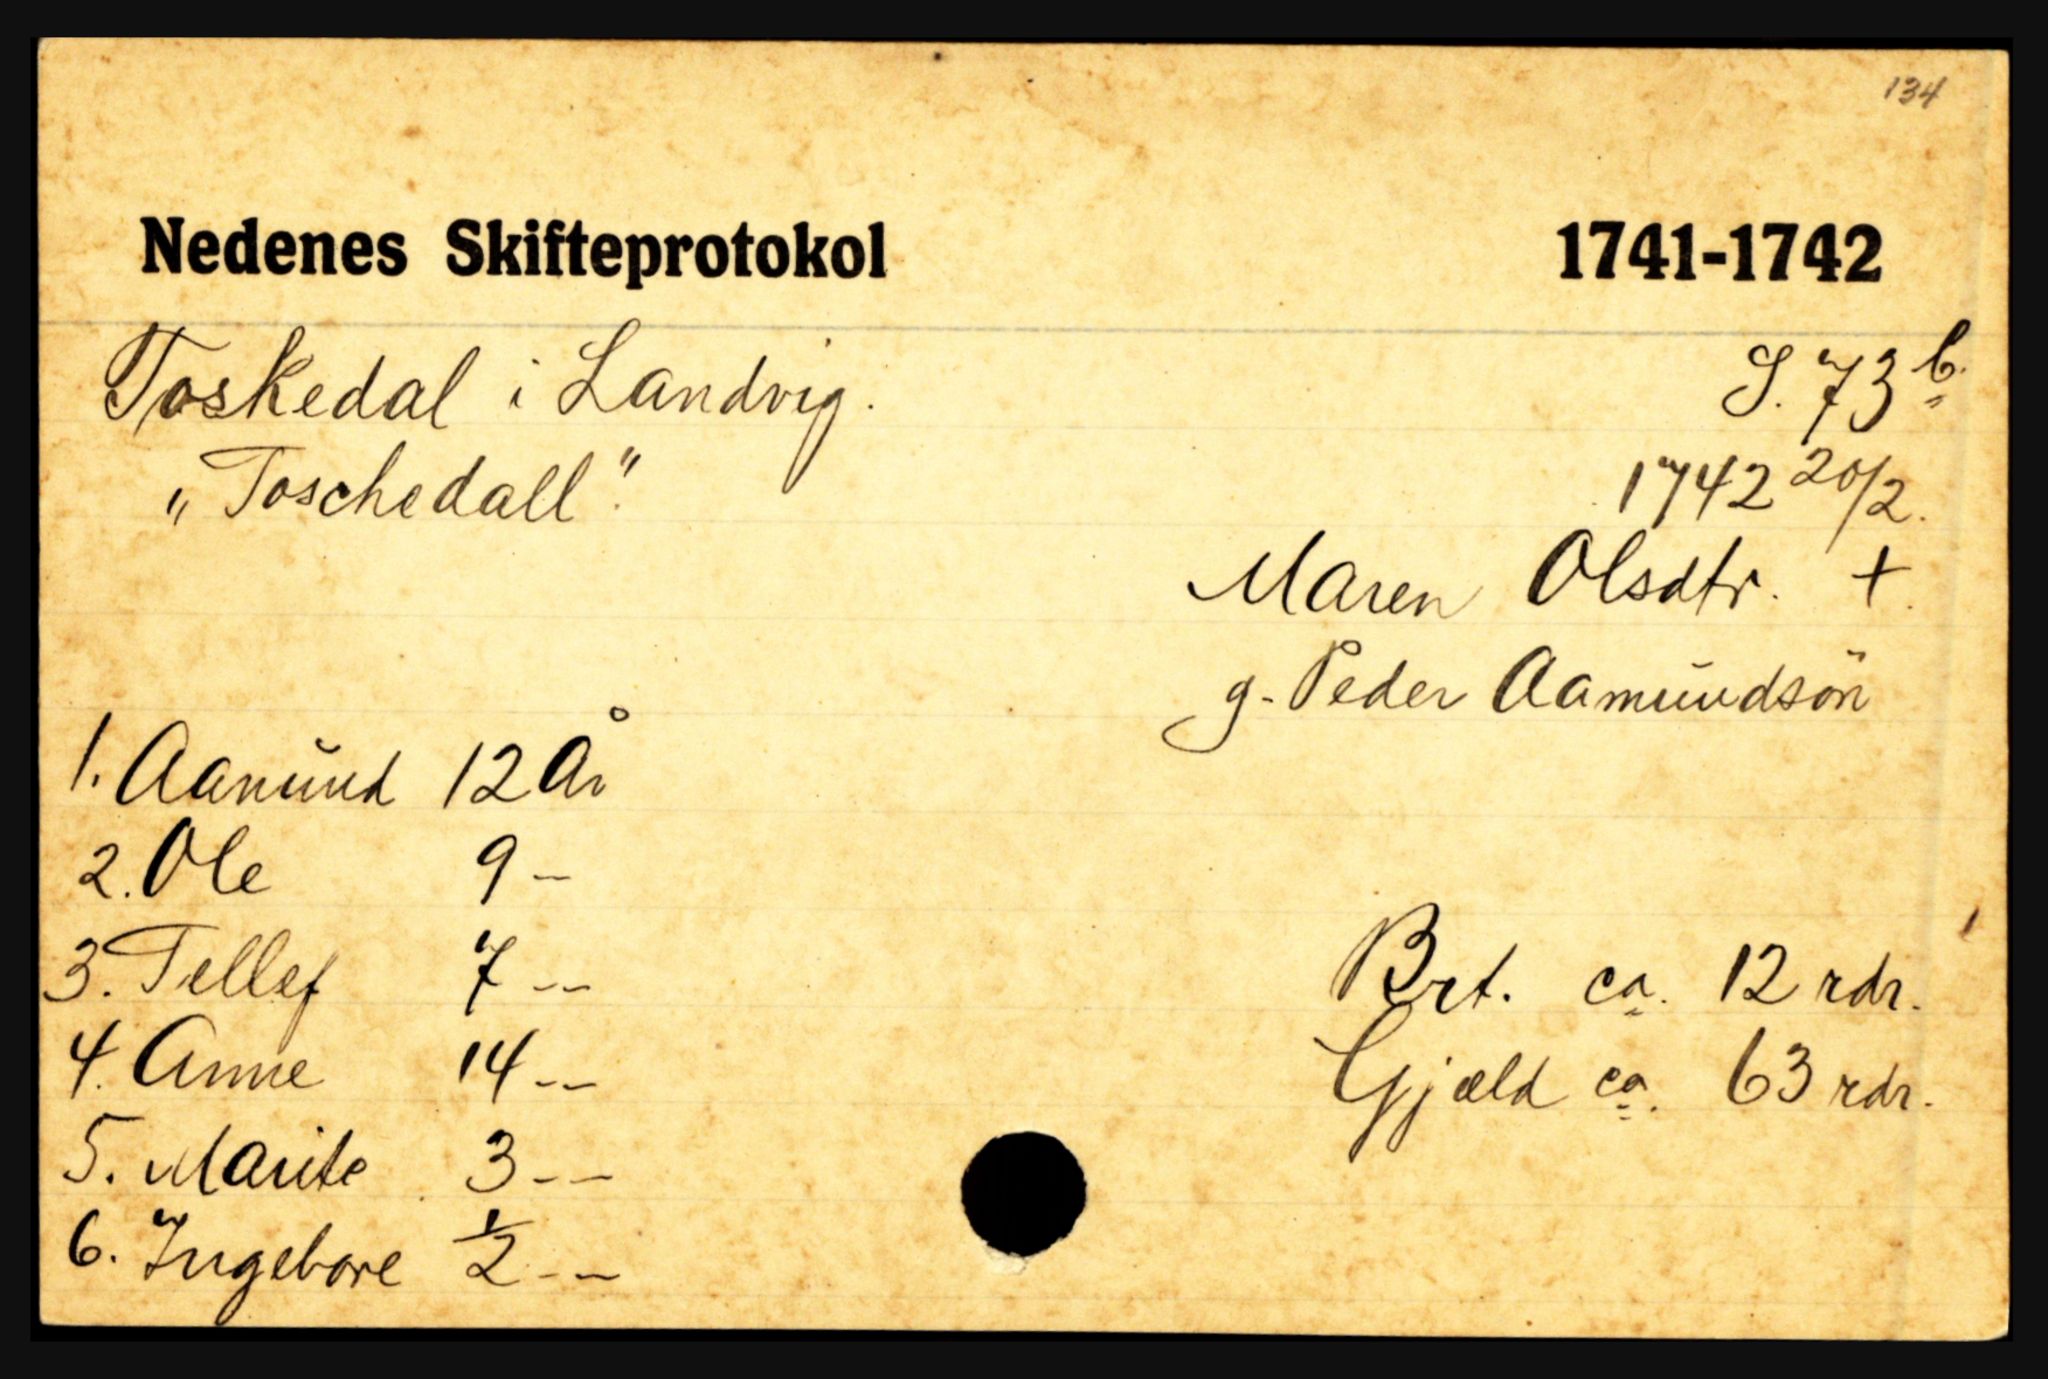 134
Nedenes Skifteprotokol 1741-1742
Toskedal i Landvig. S. 73 b.
„Toschedall". 1742 20/2.
Maren Olsdtr. +.
g. Peder Aamundsön
1. Aamund 12 År
2. Ole 9 -
3. Tellef 7 --
4. Anne 14 --
5. Marite 3 --
6. Ingebore ½ --
Brt. ca. 12 rdr.
Gjæld ca. 63 rdr.